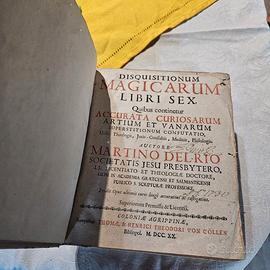 DISQUISITIONUM
MAGICARUM
LIBRI SEX,
Quibus continetur
ACCURATA CURIOSARUM
ARTIUM ET VANARUM
SUPERSTITIONUM CONFUTATIO,
Theologis, Juris-Consultis, Medicis, Philologis
AUCTORE
MARTINO DELRIO
SOCIETATIS JESU PRESBYTERO,
LL. LICENTIATO ET THEOLOGIÆ DOCTORE,
IN ACADEMIA GRÆTCENSI ET SALMANTICENSI
PUBLICO S. SCRIPTURÆ PROFESSORE.
Superiorum Permissu & Licentia.
COLONIÆ AGRIPPINÆ,
HENRICI THEODORI VON CÖLLEN
Bibliopol. M. DCC. XX.